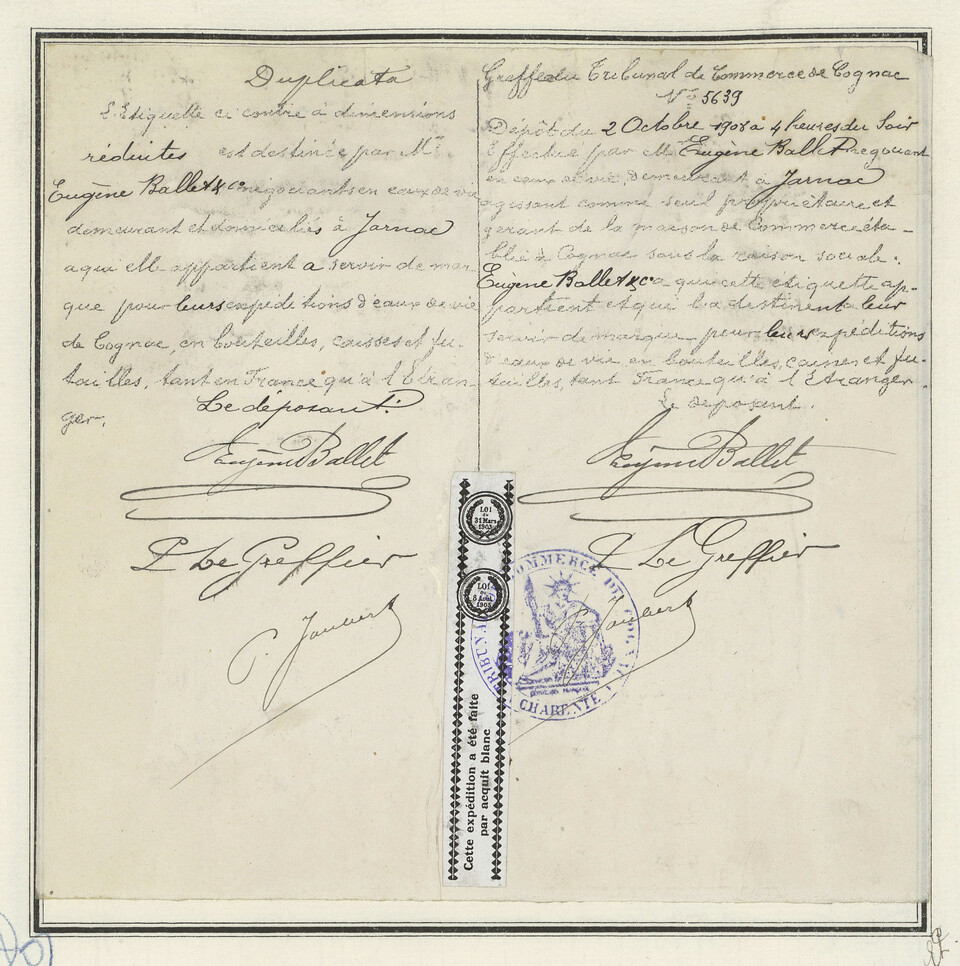 Duplicata
L'Etiquette ci contre à dimensions
réduites est destinée par MM.
Eugène Ballet & Co négociants en eaux de vie
demeurant et domiciliés à Jarnac
a qui elle appartient a servir de mar-
que pour leurs expéditions d'eaux de vie
de Cognac, en bouteilles, caisses et fu-
tailles, tant en France qu'à l'Etran-
ger.
Le déposant.
Eugène Ballet
P Le Greffier
Greffe du Tribunal de Commerce de Cognac
No 5639
Dépôt du 2 Octobre 1908 à 4 heures du Soir
Effectué par Mr Eugène Ballet negociant
en eaux de vie, demeurant à Jarnac
agissant comme seul propriétaire et
gérant de la maison de Commerce éta-
blie à Cognac sous la raison sociale.
Eugène Ballet & Co a qui cette etiquette ap-
partient et qui la destinent a leur
servir de marque pour leurs expéditions
d'eaux de vie en bouteilles, caisses et fu-
tailles, tant France qu'à l'Etranger.
Le deposant.
Eugène Ballet
P Le Greffier
LOI
du
31 Mars
1903
LOI
du
6 Août
1905
Cette expédition a été faite
par acquit blanc
TRIBUNAL COMMERCE DE COGNAC
CHARENTE